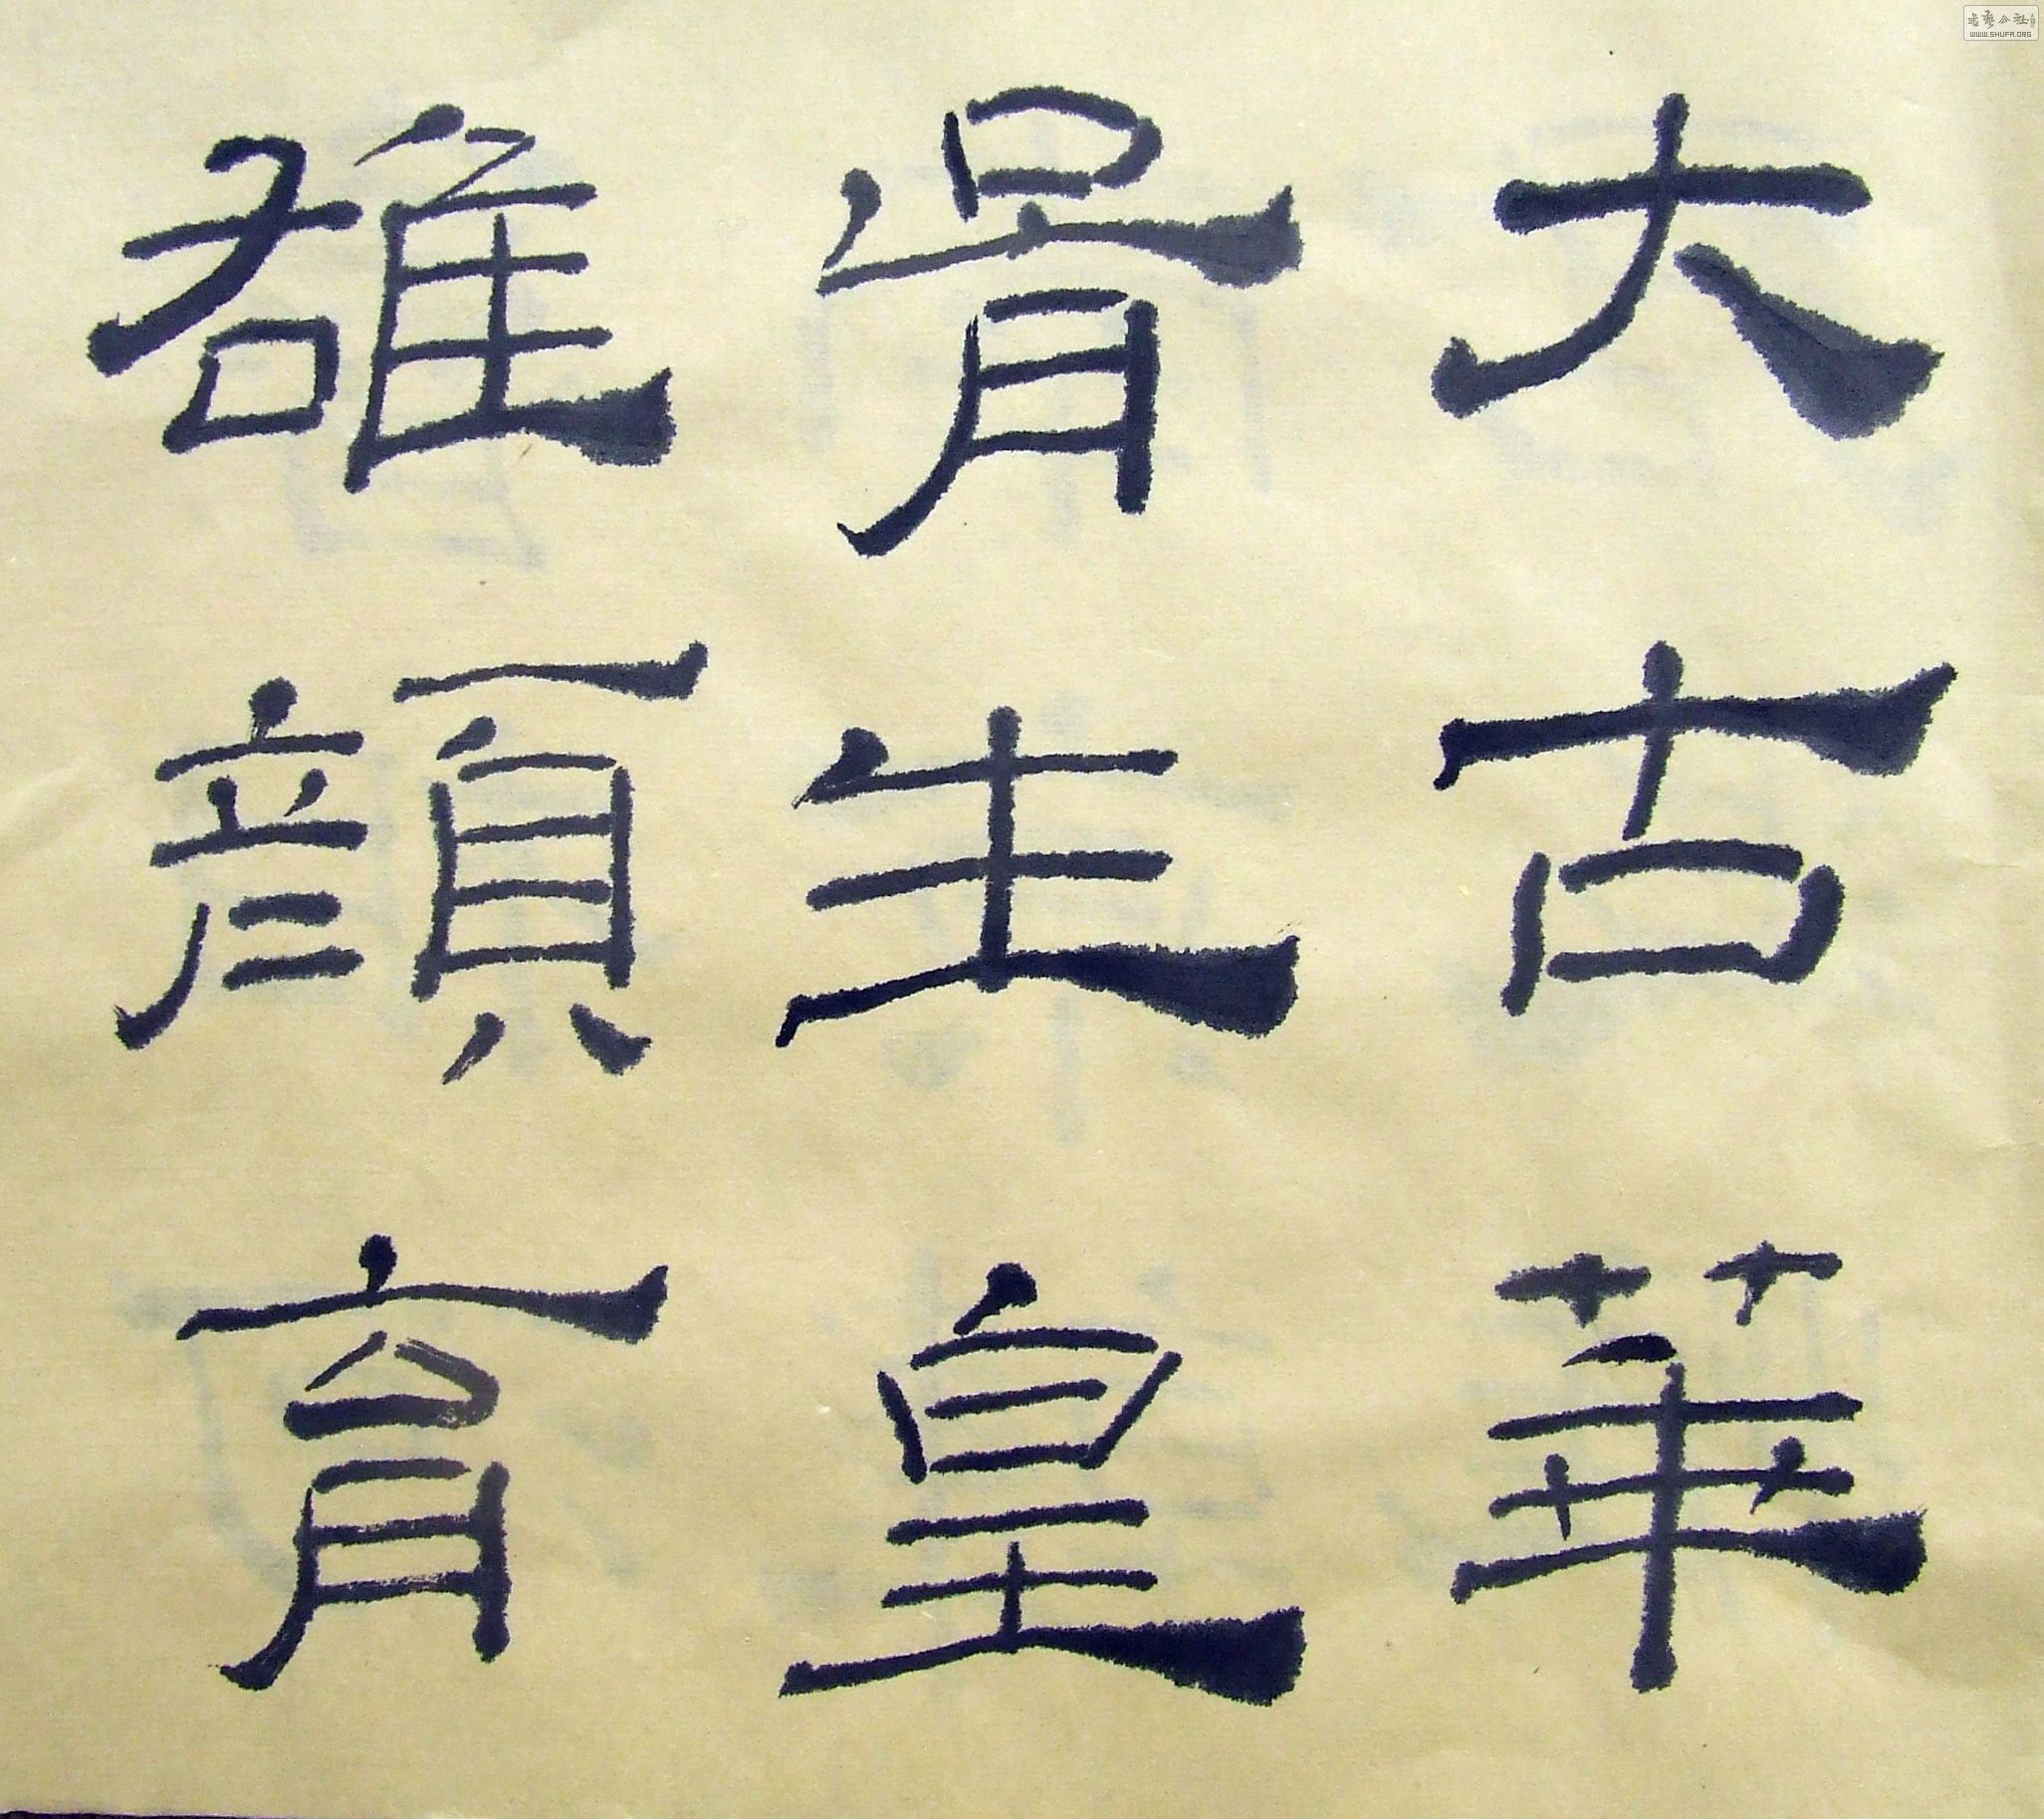 大古華
胥生皇
雄顏育
書藝公社
WWW.SHUFA.ORG